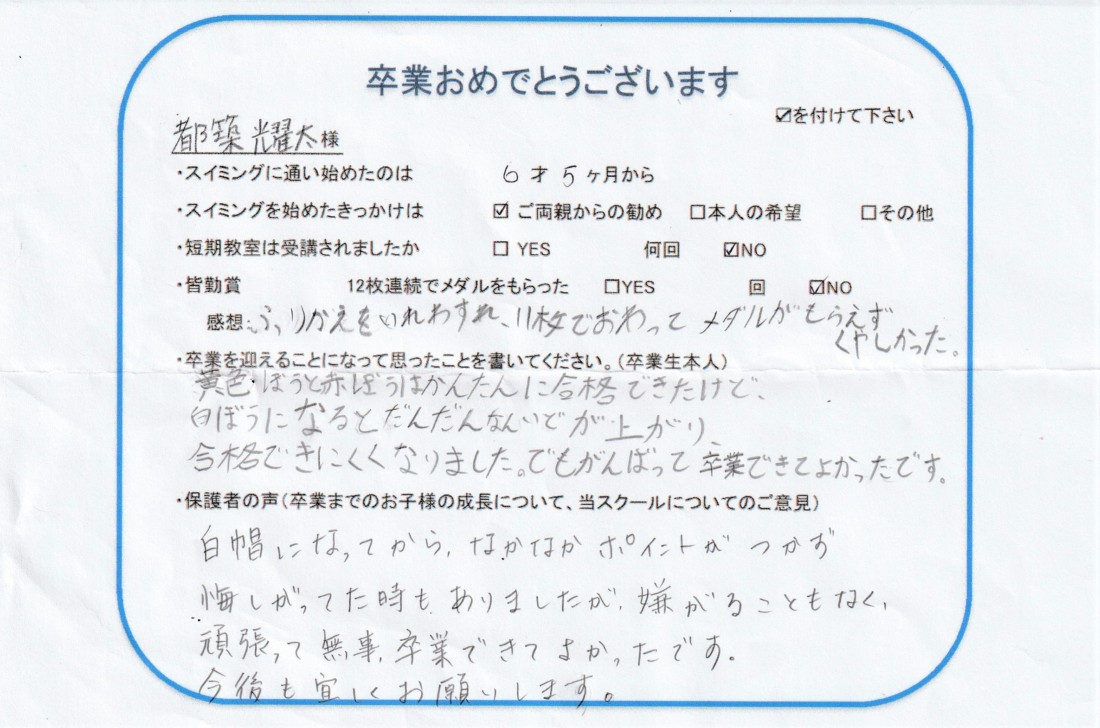 卒業おめでとうございます
☑を付けて下さい
都築 耀太様
・スイミングに通い始めたのは 6才5ヶ月から
・スイミングを始めたきっかけは ☑ ご両親からの勧め □本人の希望 □その他
・短期教室は受講されましたか □ YES 何回 ☑NO
・皆勤賞 12枚連続でメダルをもらった □YES 回 ☑NO
感想:ふりかえをいれわすれ、11枚でおわって メダルがもらえず
くやしかった。
・卒業を迎えることになって思ったことを書いてください。(卒業生本人)
黄色ぼうと赤ぼうはかんたんに合格できたけど、
白ぼうになるとだんだんないどが上がり、
合格できにくくなりました。でもがんばって卒業できてよかったです。
・保護者の声(卒業までのお子様の成長について、当スクールについてのご意見)
白帽になってから、なかなかポイントがつかず
悔しがってた時もありましたが、嫌がることもなく、
頑張って無事、卒業できてよかったです。
今後も宜しくお願いします。